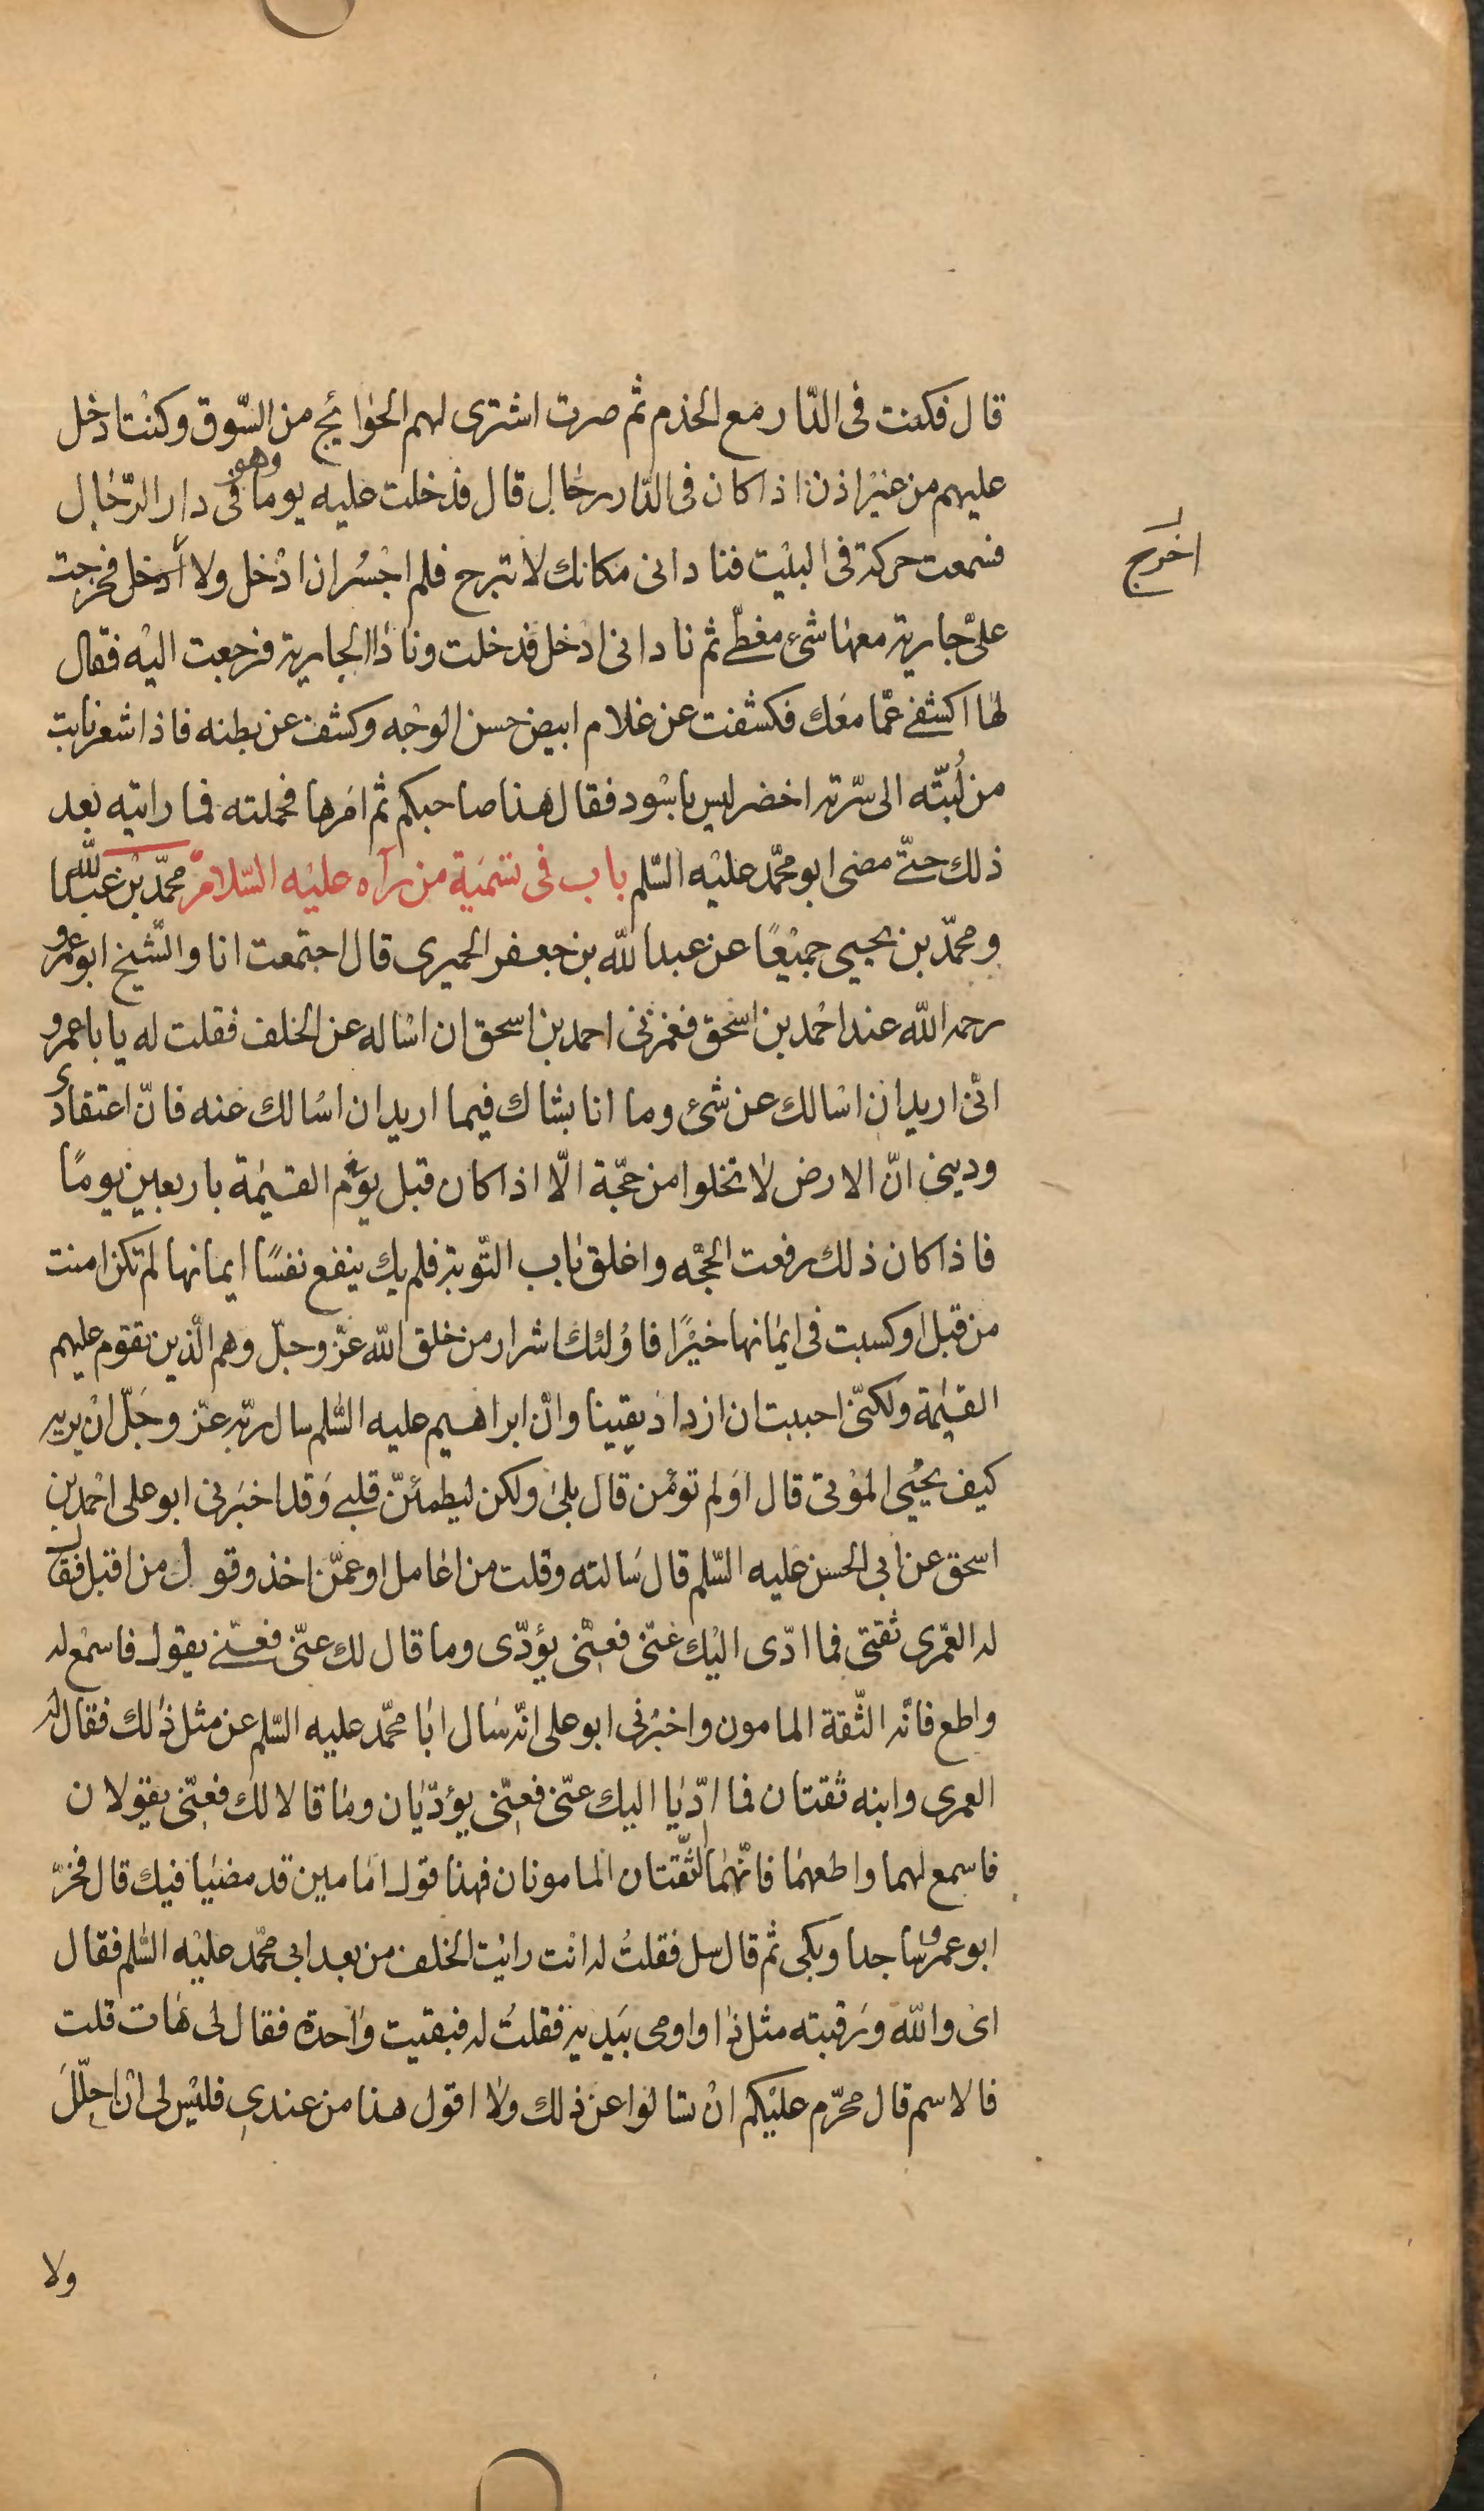 قال فكنت فى الدّار مع الخدم ثم صرت اشترى لهم الحوائج من السّوق وكنت ادخل
عليهم من غير اذن اذا كان فى الدّار رجال قال فدخلت عليه يوما وهو فى دار الرّجال
فسمعت حركة فى البيت فنادانى مكانك لا تبرح فلم اجسُر ان ادْخل ولا أدخل فخرجت
اخرج
علىّ جارية معها شىء مغطّى ثم نادانى ادْخل فدخلت ونادا الجارية فرجعت اليْه فقال
لها اكشفى عمّا معَك فكشفت عن غلام ابيض حسن الوجْه وكشف عن بطنه فاذا شعر نابت
من لُبّته الى سرّته اخضر ليس باسْود فقال هذا صاحبكم ثم امَرها فحملته فما رايته بعد
ذلك حتّى مضى ابو محمّد عليْه السّلم باب فى تسْمَية من رآه عليْه السّلام محمّد بْن عبد اللّه
ومحمّد بن يحيى جميْعًا عن عبد اللّه بن جعفر الحميرى قال اجتمعت انا والشّيخ ابو عمرو
رحمه اللّه عند احْمد بن اسْحق فغمزنى احمد بن اسحق ان اسْاله عن الخلف فقلت له يا با عمرو
انّى اريد ان اسْالك عن شىء وما انا بشاك فيما اريد ان اسْالك عنه فانّ اعتقادى
ودينى انّ الارض لا تخلوا من حجّة الّا اذا كان قبل يوْم القيٰمة باربعين يومًا
فاذا كان ذلك رفعت الحجّه واغلق باب التّوبة فلم يك ينفع نفسًا ايمانها لم تكن امنت
من قبل او كسبت فى ايمانها خيْرًا فاوُلئك اشرار من خلق اللّه عزّ وجلّ وهم الّذين تقوم عليهم
القيٰمة ولكنّى احببت ان ازداد يقينا وانّ ابراهيم عليه السّلم سال ربّه عزّ وجَلّ انْ يريه
كيف يحْيى الموْتى قال اوَلم تؤمن قال بلىٰ ولكن ليطمئنّ قلبى وَقد اخبَرنى ابو على احْمد بن
اسحق عن ابى الحسن عليه السّلم قال سَالته وقلت من اعامل او عمّن اخذ وقول من اقبل فقال
له العمْرى ثقتى فما ادّى اليْك عنّى فعنّى يؤدّى وما قال لك عنّى فعنّى يقول فاسْمع له
واطع فانّه الثّقة المامون واخبْرنى ابو على انّه سَال ابَا محمّد عليه السّلم عن مثل ذٰلك فقال له
العمرى وابنه ثقتان فما ادّيَا اليك عنّى فعنّى يؤدّيان ومَا قالا لك فعنّى يقولان
فاسمع لهما واطعهمَا فانّهمَا الثّقتان المامونان فهذا قول امَامين قد مضيَا فيك قال فخرّ
ابو عمرو سَاجدا وبكى ثم قال سل فقلتُ له انْت رايْت الخلف من بعد ابى محمّد عليْه السّلم فقال
اىْ واللّه وَرقبته مثل ذا واومى بيَديه فقلتُ له فبقيت وَاحدة فقال لى هَات قلت
فالاسم قال محرّم عليْكم انْ تسَالوا عن ذلك ولا اقول هذا من عندى فليْس لى انْ احلّلَ
ولا